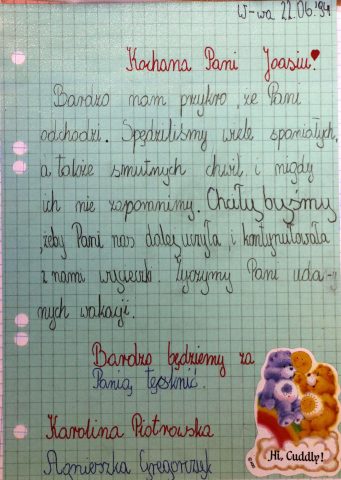 W-wa 22.06.94
Kochana Pani Joasiu!
Bardzo nam przykro, że Pani
odchodzi. Spędziliśmy wiele spaniałych,
a także smutnych chwil i nigdy
ich nie zapomnimy. Chciały byśmy
, żeby Pani nas dalej uczyła, i kontynułowała
z nami wycieczki. Życzymy Pani uda-
nych wakacji.
Bardzo będziemy za
Panią tęsknić.
Karolina Piotrowska
Agnieszka Gregorczyk
Hi, Cuddly!